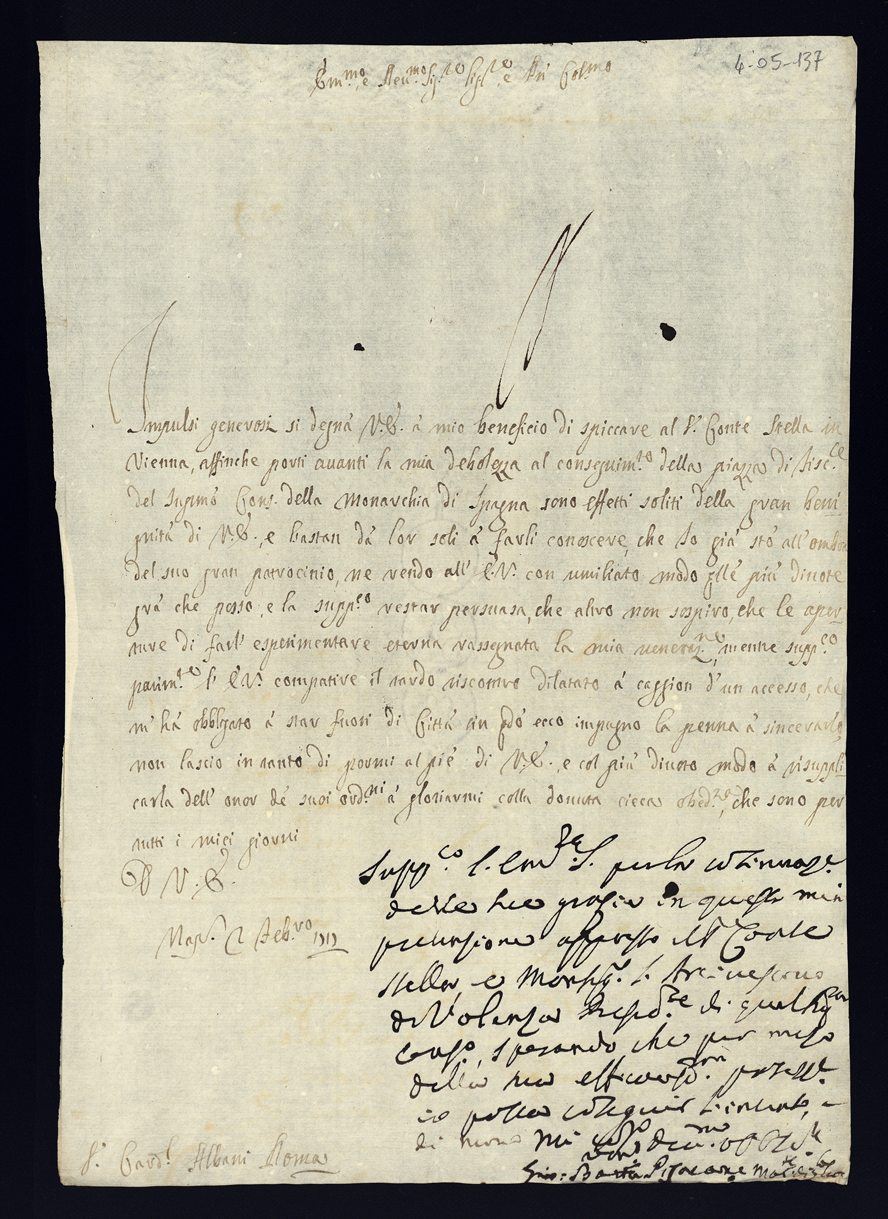 4-05-137
Em.mo e Rev.mo Sig.re Sig.re e Pn' Col.mo
Impulsi generosi si degna V.E. à mio beneficio di spiccare al S.r Conte Stella in
Vienna, affinche porti avanti la mia debolezza al conseguim.to della piazza di Fisc.le
del Supmo Cons. della Monarchia di Spagna sono effetti soliti della gran beni
gnità di V.E., e bastan dà lor soli à farli conoscere, che Io già stò all'ombra
del suo gran patrocinio, ne rendo all'E.V. con umiliato modo q̃lle più divote
grã che posso, e la supp.co restar persuasa, che altro non sospiro, che le aper
ture di farl' esperimentare eterna rassegnata la mia veneraz.ne, mentre supp.co
parim.te l'E.V. compatire il tardo riscontro dilatato à caggion d'un accesso, che
m'hà obbligato à star fuori di Città in q̃do ecco impugno la penna à sincerarla,
non lascio in tanto di pormi al piè di V.E., e col più divoto modo à risuppli
carla dell'onor dé suoi ord.ni à gloriarmi colla dovuta cieca obed.za, che sono per
tutti i miei giorni
D V.E.
Nap. 2 Feb.ro 1717
Supp.co l'Em.za S. per la
delle sue grazie in questa mia
pretensione appresso il S.r Conte
Stella e Monsig.r l'Arcivescovo
di Valenza Presid.te di quel
Cons.o, sperando che per mezo
della sua
io possa conseguir l'intento, e
di nuovo mi
Gio: Batta
S.r Card.l Albani Roma